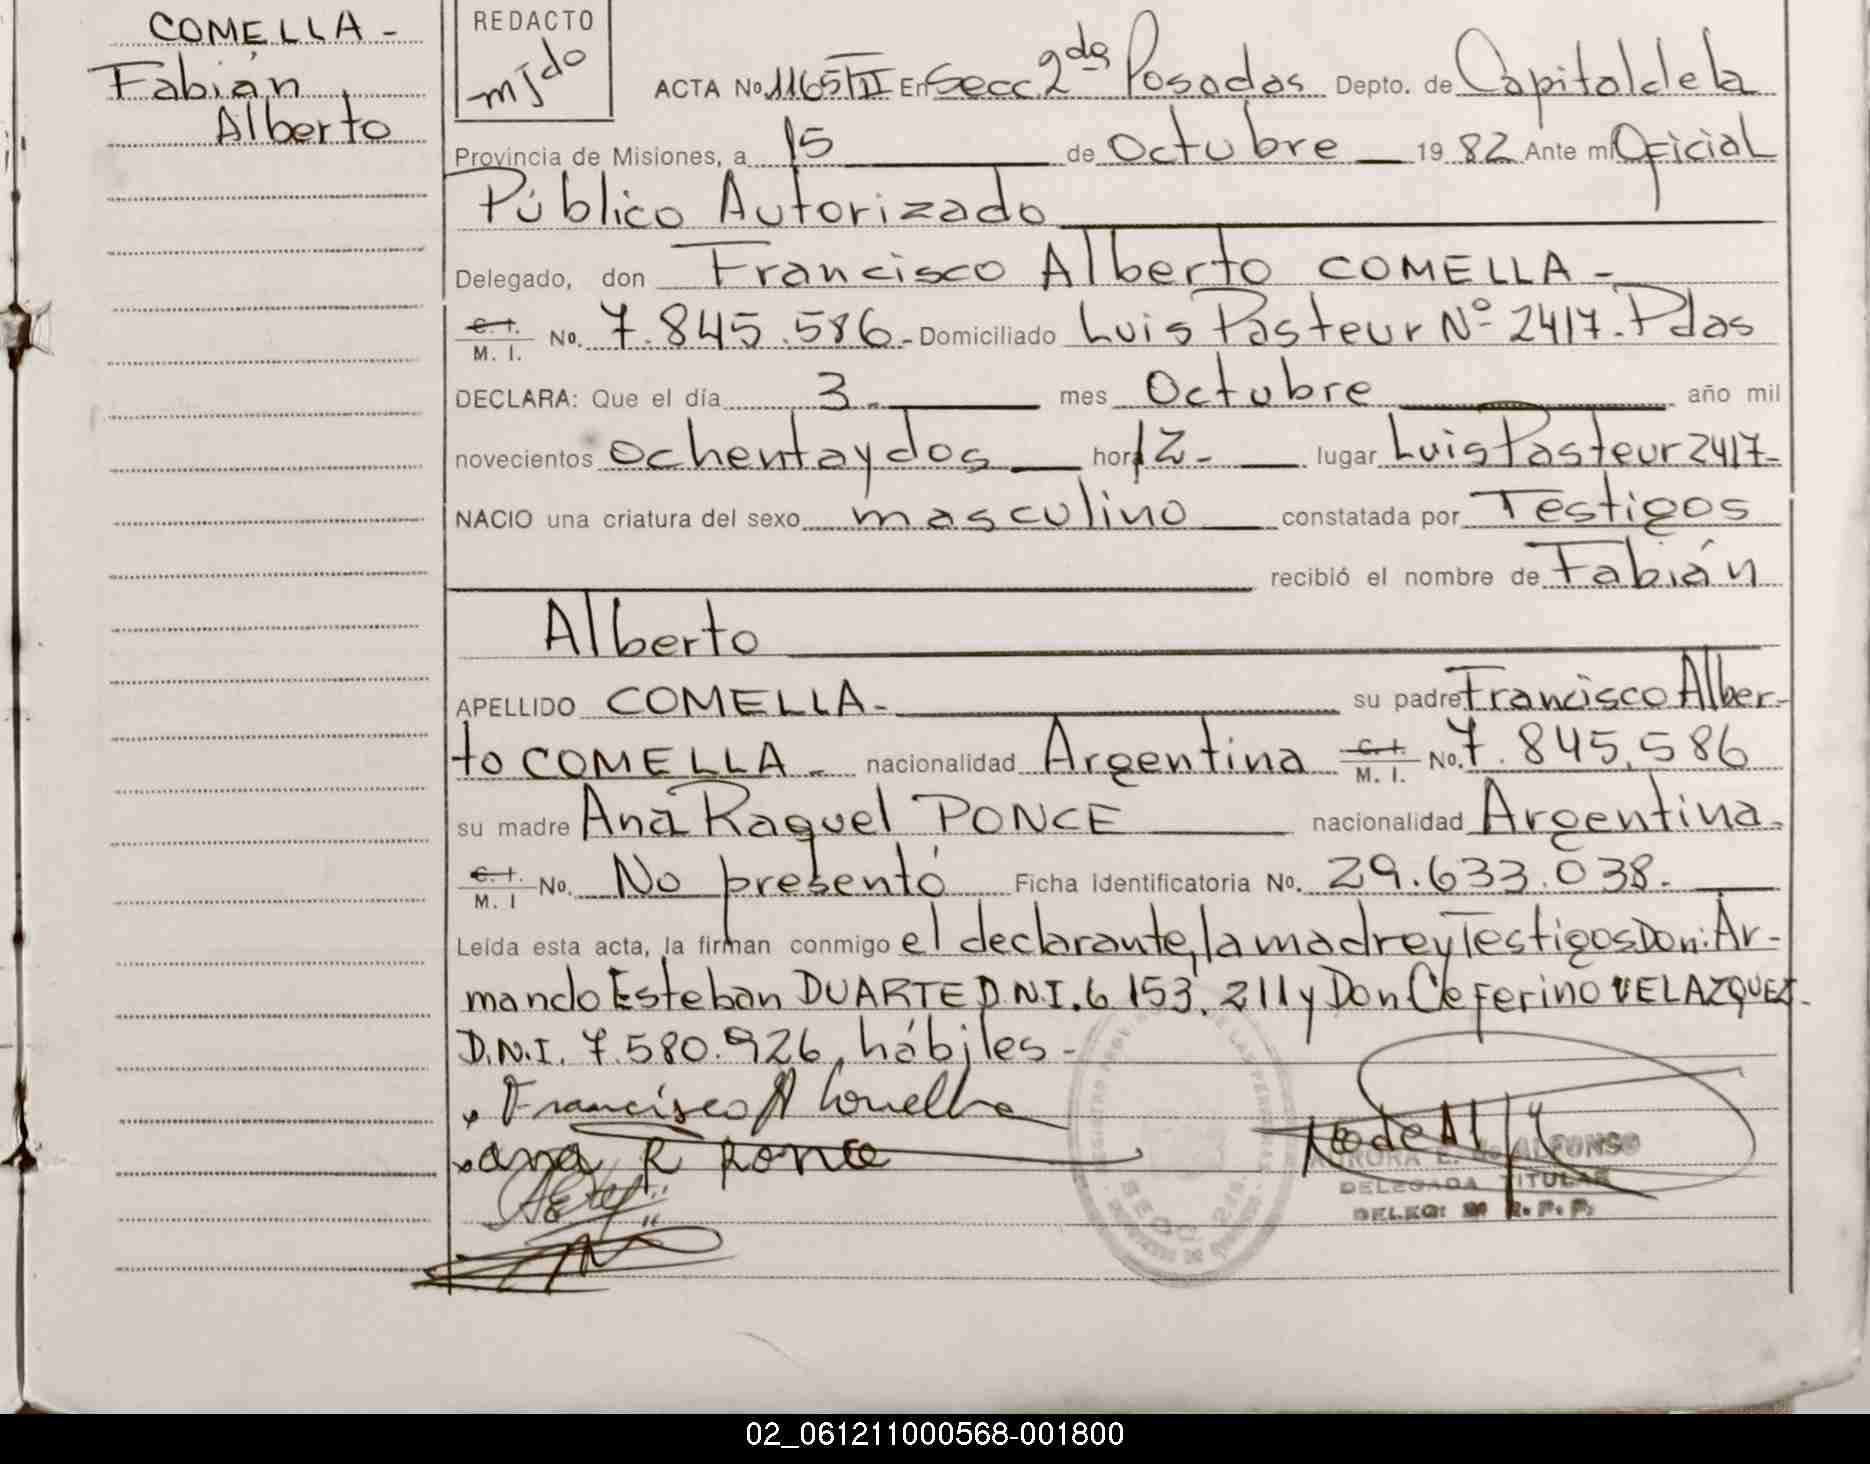 COMELLA -
Fabián
Alberto
REDACTO
mjdo
ACTA No 1165/III En Secc. 2da Posadas Depto. de Capital de la
Provincia de Misiones, a 15 de Octubre 1982 Ante mi Oficial
Público Autorizado
Delegado, don Francisco Alberto COMELLA -
C. I. / M. I. No. 7.845.586 - Domiciliado Luis Pasteur Nº 2417. Pdas
DECLARA: Que el día 3 mes Octubre año mil
novecientos ochenta y dos hora 12 - lugar Luis Pasteur 2417 -
NACIO una criatura del sexo masculino constatada por Testigos
recibió el nombre de Fabián
Alberto
APELLIDO COMELLA - su padre Francisco Alber-
to COMELLA - nacionalidad Argentina C. I. / M. I. No. 7.845.586
su madre Ana Raquel PONCE nacionalidad Argentina.
C. I. / M. I No. No presentó Ficha identificatoria No. 29.633.038.
Leída esta acta, la firman conmigo el declarante, la madre y Testigos Don: Ar-
mando Esteban DUARTE D.N.I. 6.153.211 y Don Ceferino VELAZQUEZ -
D.N.I. 7.580.926, hábiles -
Francisco A Comella
ana R Ponce
AURORA E. de ALFONSO
DELEGADA TITULAR
DELEG: 2ª R. P. P.
SECC. 2da.
02_061211000568-001800